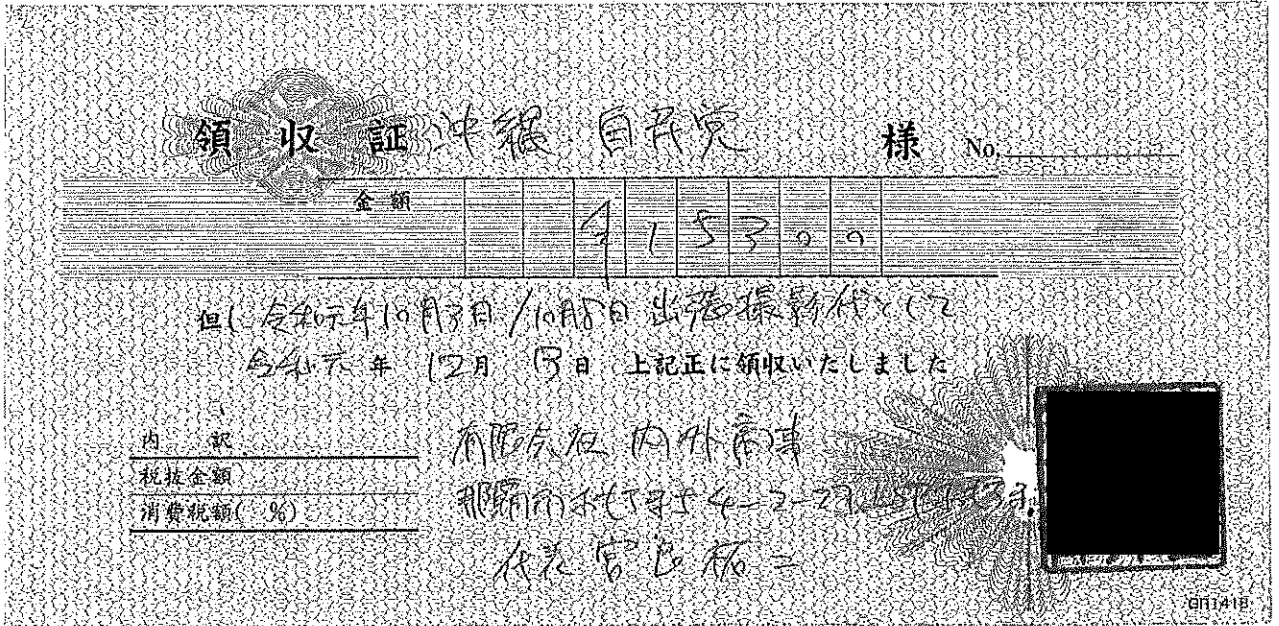 領収証 沖縄・自民党 様 No.
金額 ¥15300
但し 令和元年10月3日/10月8日 出張撮影代として
令和元年 12月 13日 上記正に領収いたしました
内訳
税抜金額
消費税額( %)
有限会社 内外
那覇市 4-2-
代表 宮良 二
GR1418